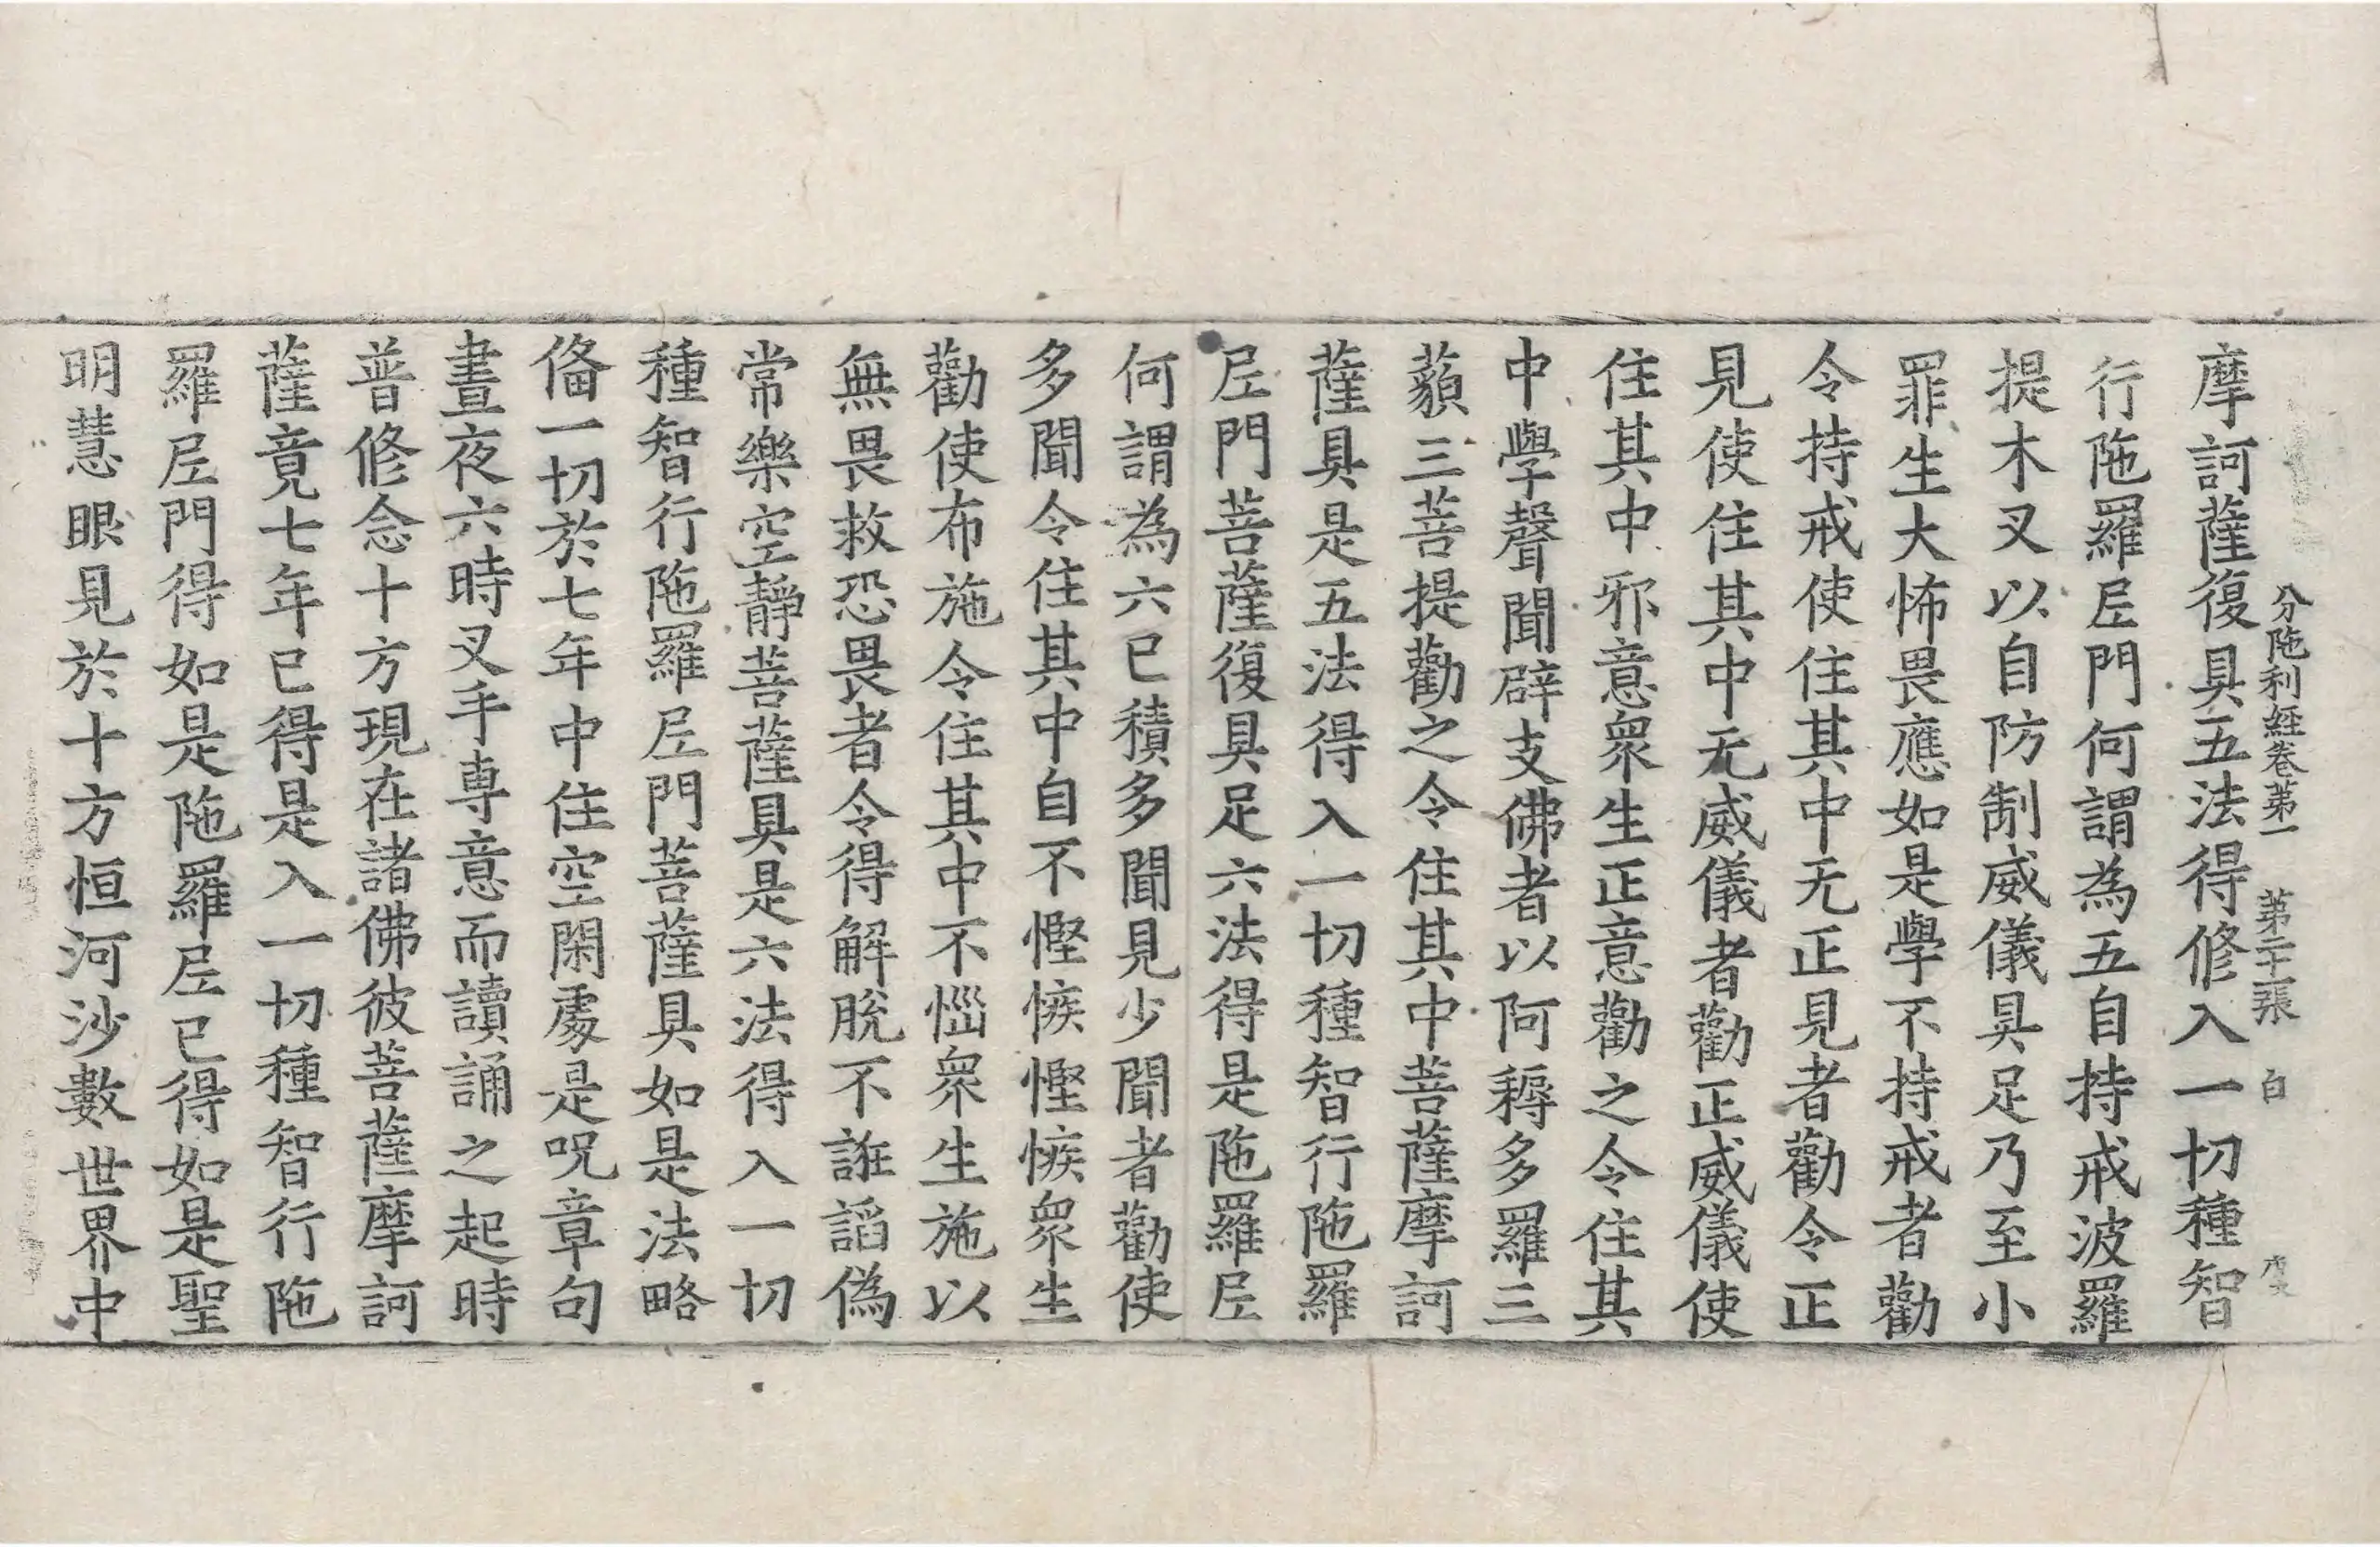 分陁利經卷第一 第二十一張 白
摩訶薩復具五法得修入一切種智
行陁羅𡰱門何謂為五自持戒波羅
提木叉以自防制威儀具足乃至小
罪生大怖畏應如是學不持戒者勸
令持戒使住其中无正見者勸令正
見使住其中无威儀者勸正威儀使
住其中邪意衆生正意勸之令住其
中學聲聞辟支佛者以阿耨多羅三
藐三菩提勸之令住其中菩薩摩訶
薩具是五法得入一切種智行陁羅
𡰱門菩薩復具足六法得是陁羅𡰱
何謂為六已積多聞見少聞者勸使
多聞令住其中自不慳悋慳悋衆生
勸使布施令住其中不惱衆生施以
無畏救恐畏者令得解脫不誑諂偽
常樂空靜菩薩具是六法得入一切
種智行陁羅𡰱門菩薩具如是法略
俻一切於七年中住空閑處是呪章句
晝夜六時叉手専意而讀誦之起時
普修念十方現在諸佛彼菩薩摩訶
薩竟七年已得是入一切種智行陁
羅𡰱門得如是陁羅𡰱已得如是聖
明慧眼見於十方恒河沙數世界中